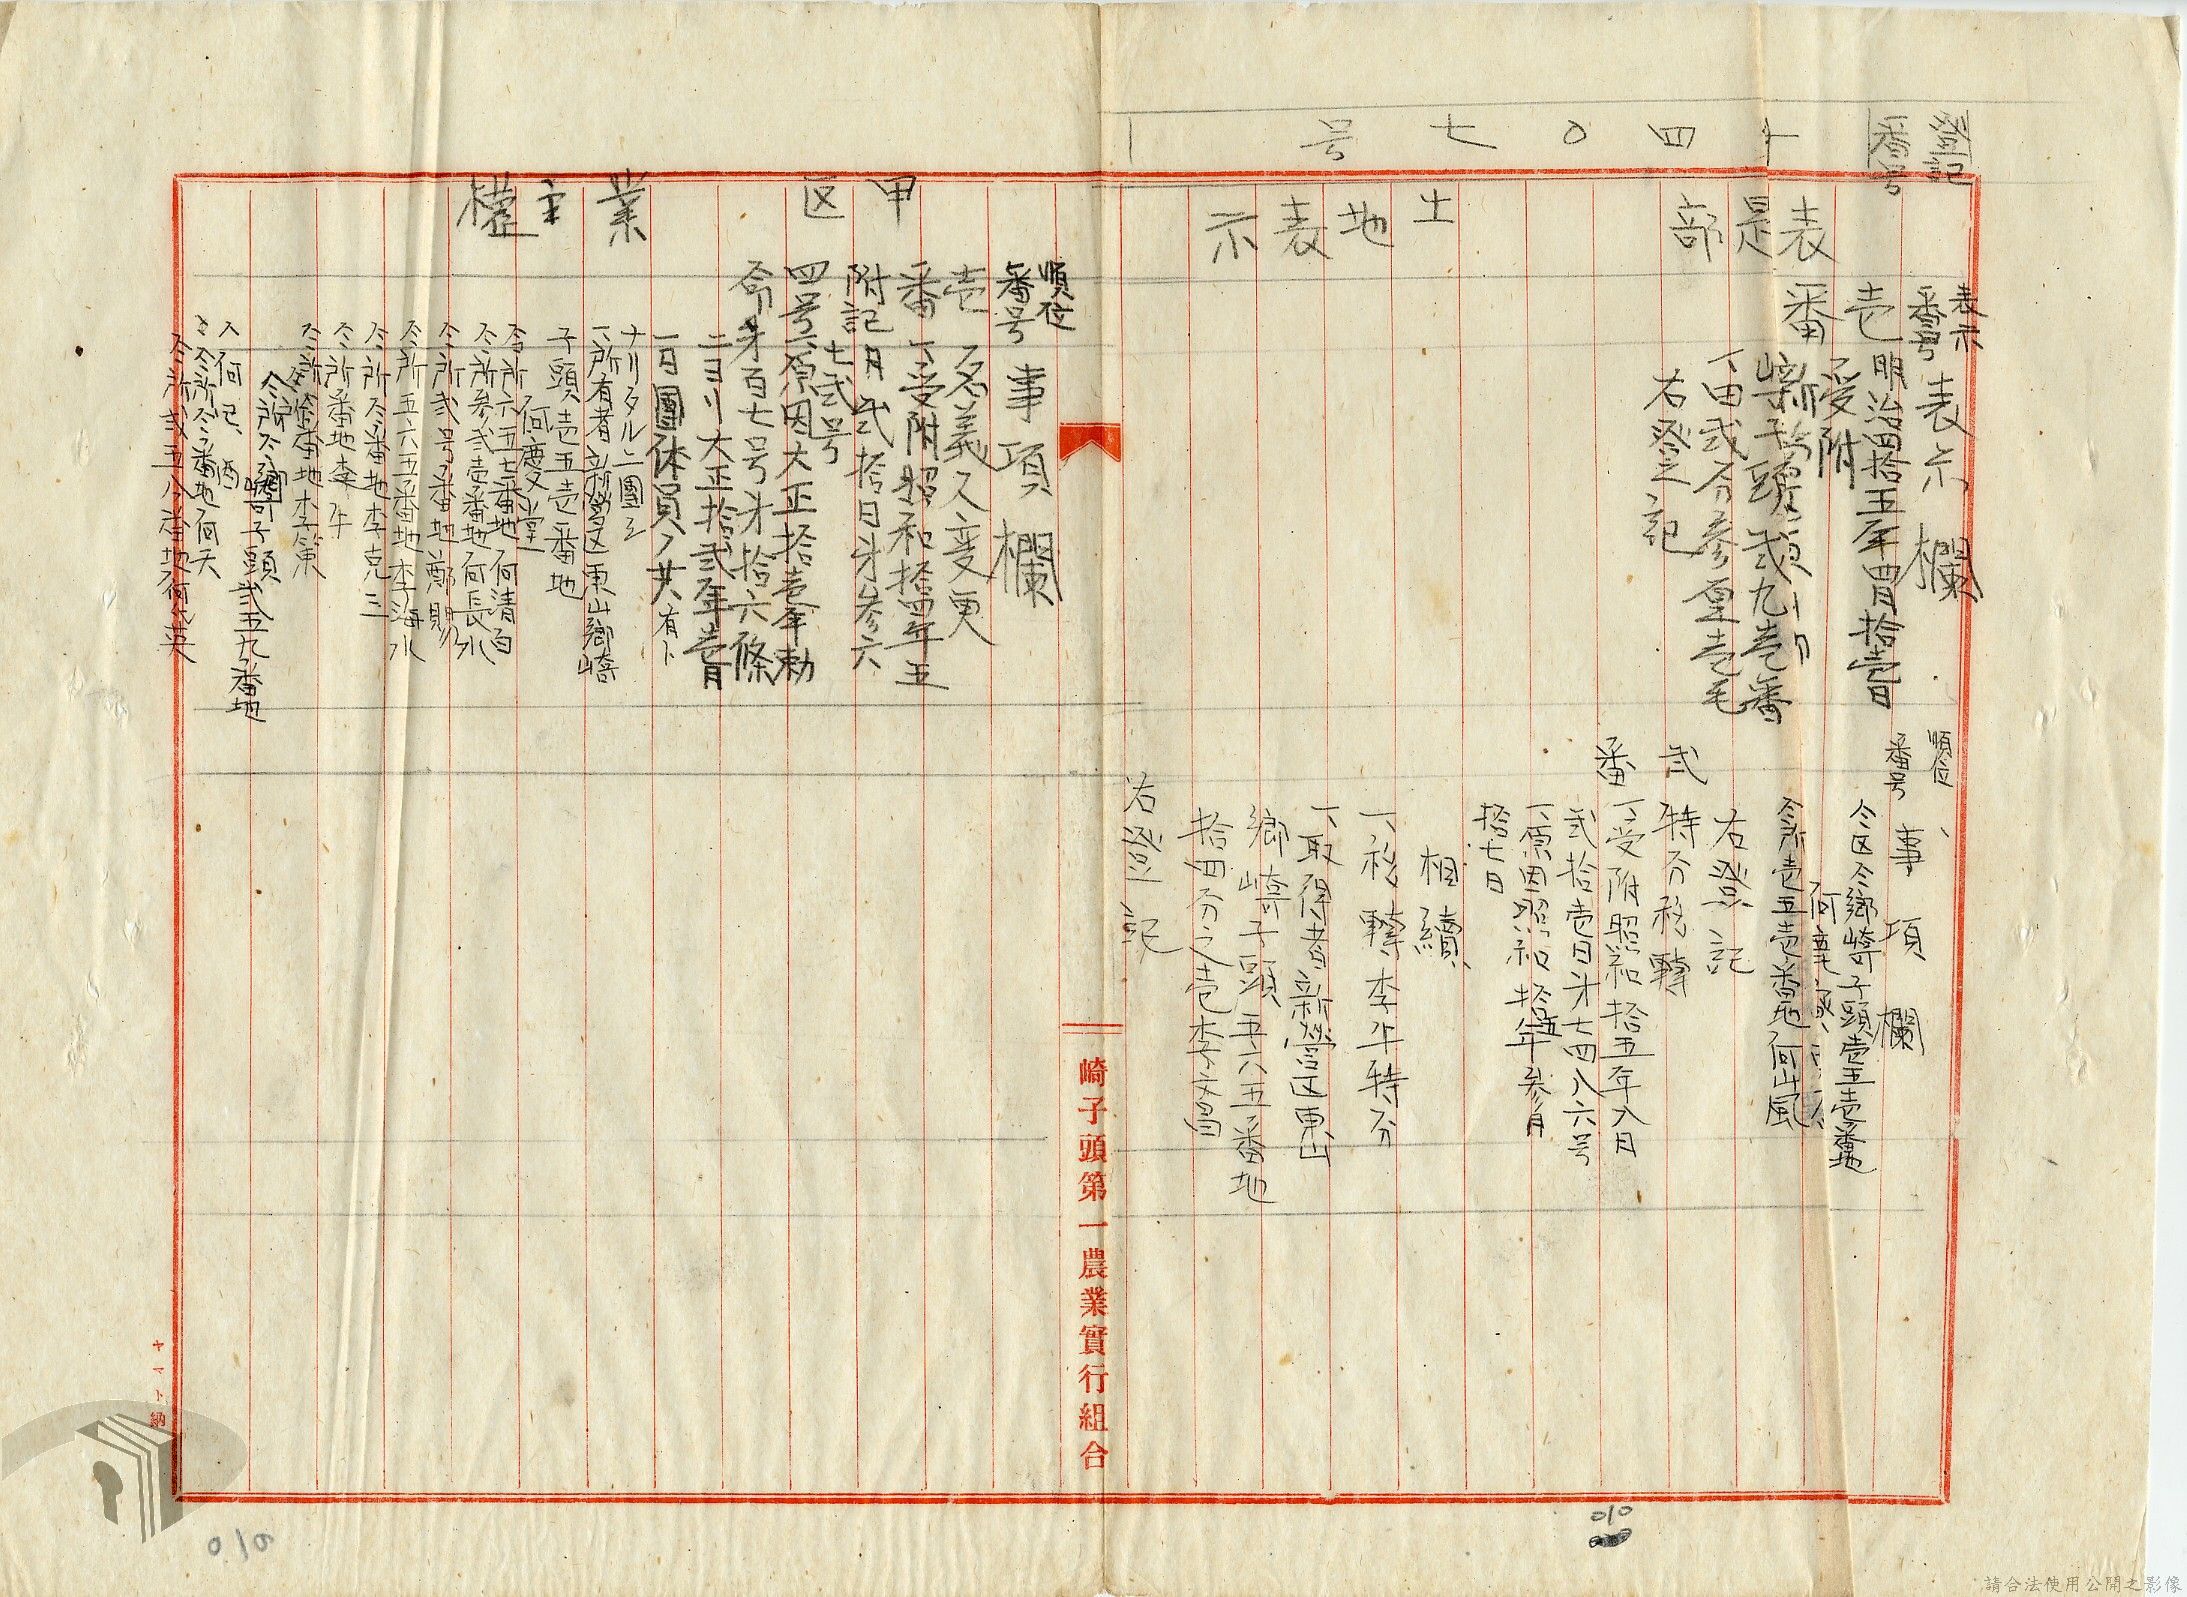 登記
番号
十四〇七号
表題部
土地表示
表示
番号
表示欄
壱
番
明治四拾五年四月拾壱日
受附
崎子頭弐九壱番
一田弐分参厘壱毛
右登記
順位
番号
事項欄
仝区仝鄉崎子頭壱五壱番地
仝所壱五壱番地何山風
右登記
弐
番
持分移轉
一受附昭和拾五年八月
弐拾壱日第七四八六号
一原因昭和拾五年参月
拾七日
相續
一移轉李牛持分
一取得者新營区東山
鄉崎子頭五六五番地
拾四分之壱李文昌
右登記
甲区
業主權
順位
番号
事項欄
壱
番
附記
名義人変更
一受附昭和拾四年五
月弐拾日第参六
七弐号
四号
一原因大正拾壱年勅
令第百七号第拾六條
ニヨリ大正拾弐年壱月
一日團体員ノ共有ト
ナリタルニ因ル
一所有者新營区東山鄉崎
子頭壱五壱番地
何慶堂
仝所六五七番地何清白
仝所参弐壱番地何長水
仝所弐号番地鄭賜
仝所五六五番地李海水
仝所仝番地李克三
仝所番地李牛
仝所仝番地李策
仝所仝崎子頭弐五九番地
仝所仝番地何天
仝所弐五八番地何代英
崎子頭第一農業實行組合
ヤマト納
010
010
請合法使用公開之影像